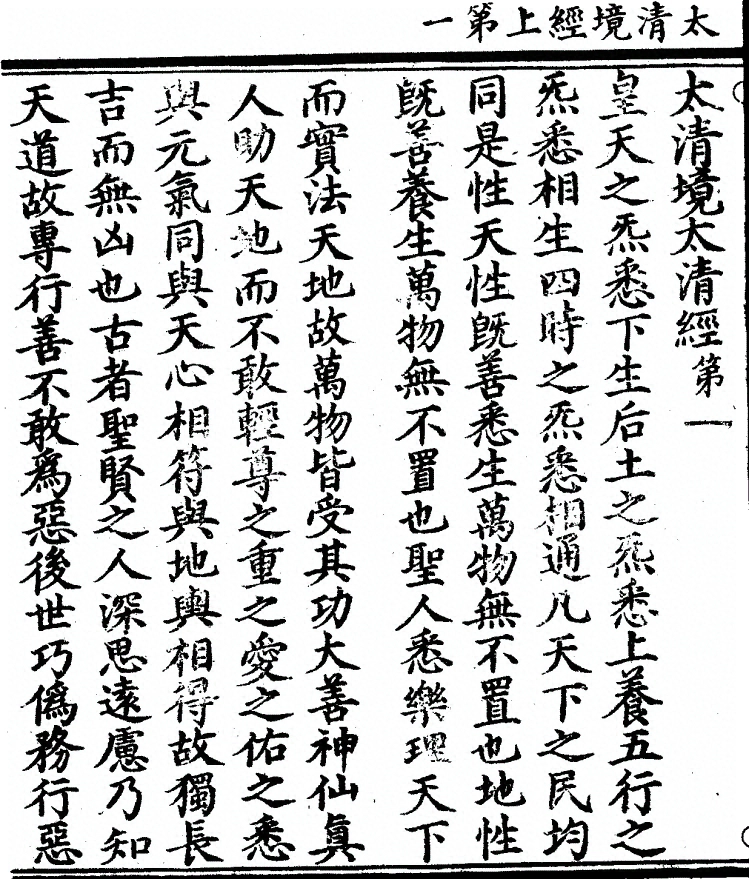 太清境經上第一
太清境太清經第一
皇天之炁悉下生后土之炁悉上養五行之
炁悉相生四時之炁悉相通凡天下之民均
同是性天性旣善悉生萬物無不置也地性
旣善養生萬物無不置也聖人悉樂理天下
而實法天地故萬物皆受其功大善神仙眞
人助天地而不敢輕尊之重之愛之佑之悉
與元氣同與天心相符與地輿相得故獨長
吉而無凶也古者聖賢之人深思遠慮乃知
天道故專行善不敢爲惡後世巧僞務行惡